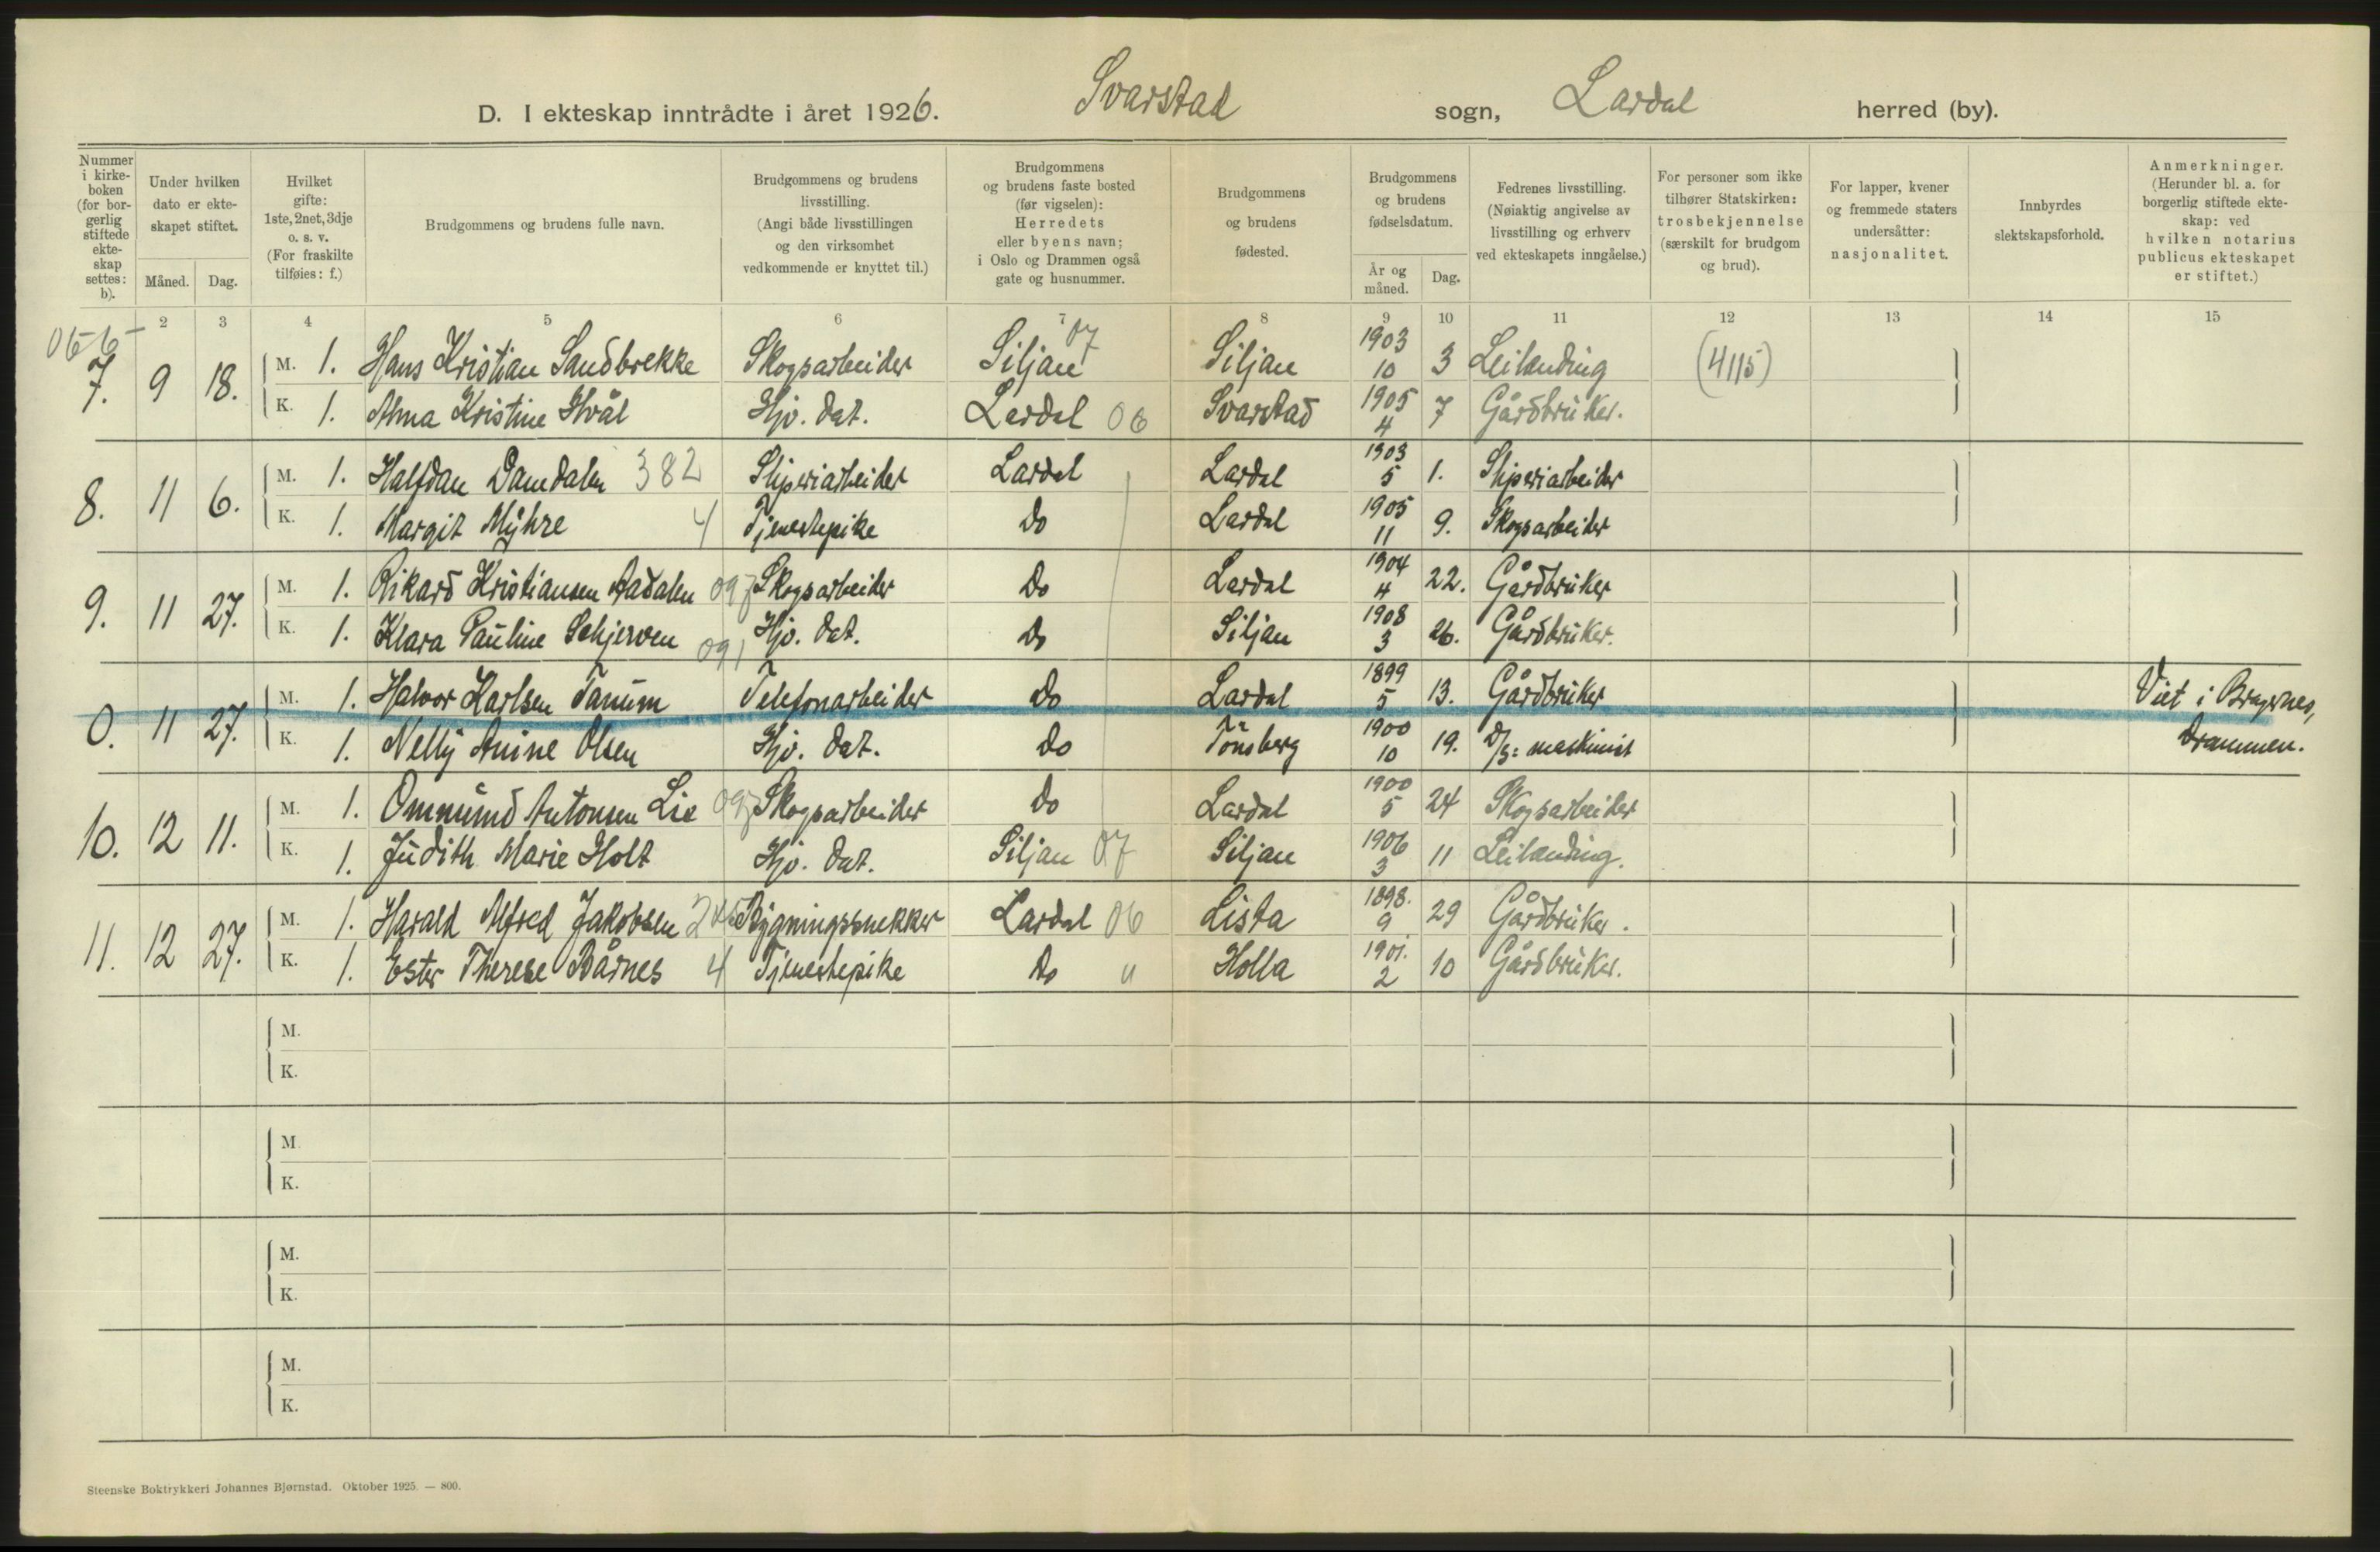 D. I ekteskap inntrådte i året 1926. Svarstad sogn, Lardal herred (by).
Nummer i kirkeboken (for borgerlig stiftede ekteskap settes: b).
Under hvilken dato er ekteskapet stiftet.
Måned. Dag.
Hvilket gifte: 1ste, 2net, 3dje o. s. v. (For fraskilte tilføies: f.)
Brudgommens og brudens fulle navn.
Brudgommens og brudens livsstilling. (Angi både livsstillingen og den virksomhet vedkommende er knyttet til.)
Brudgommens og brudens faste bosted (før vigselen): Herredets eller byens navn; i Oslo og Drammen også gate og husnummer.
Brudgommens og brudens fødested.
Brudgommens og brudens fødselsdatum.
År og måned. Dag.
Fedrenes livsstilling. (Nøiaktig angivelse av livsstilling og erhverv ved ekteskapets inngåelse.)
For personer som ikke tilhører Statskirken: trosbekjennelse (særskilt for brudgom og brud).
For lapper, kvener og fremmede staters undersåtter: nasjonalitet.
Innbyrdes slektskapsforhold.
Anmerkninger. (Herunder bl. a. for borgerlig stiftede ekteskap: ved hvilken notarius publicus ekteskapet er stiftet.)
2 3 4 5 6 7 8 9 10 11 12 13 14 15
7. 9 18. M. 1. Hans Kristian Sandbrekke Skogsarbeider Siljan 07 Siljan 1903 10 3 Leilending (4115)
K. 1. Alma Kristine Hvål Hjv. dat. Lardal 06 Svarstad 1905 4 7 Gårdbruker.
8. 11 6. M. 1. Halfdan Damdalen 382 Sliperiarbeider Lardal Lardal 1903 5 1. Sliperiarbeider
K. 1. Margit Myhre 4 Tjenestepike Do Lardal 1905 11 9. Skogsarbeider
9. 11 27. M. 1. Rikard Kristiansen Aadalen 097 Skogsarbeider Do Lardal 1904 4 22. Gårdbruker
K. 1. Klara Pauline Schjerven 091 Hjv. dat. Do Siljan 1908 3 26. Gårdbruker.
0. 11 27. M. 1. Halvor Karlsen Tanum Telefonarbeider Do Lardal 1899 5 13. Gårdbruker Viet i Bragernes,
K. 1. Nelly Anine Olsen Hjv. dat. Do Tönsberg 1900 10 19. D/S: maskinist Drammen.
10. 12 11. M. 1. Ommund Antonsen Lie 097 Skogsarbeider Do Lardal 1900 5 24 Skogsarbeider
K. 1. Judith Marie Holt Hjv. dat. Siljan 07 Siljan 1906 3 11 Leilending.
11. 12 27. M. 1. Harald Alfred Jakobsen Bygningssnekker Lardal 06 Lista 1898. 9 29 Gårdbruker.
K. 1. Ester Therese Bårnes 4 Tjenestepike Do " Holla 1901. 2 10 Gårdbruker.
M.
K.
M.
K.
M.
K.
M.
K.
Steenske Boktrykkeri Johannes Bjørnstad. Oktober 1925. — 800.